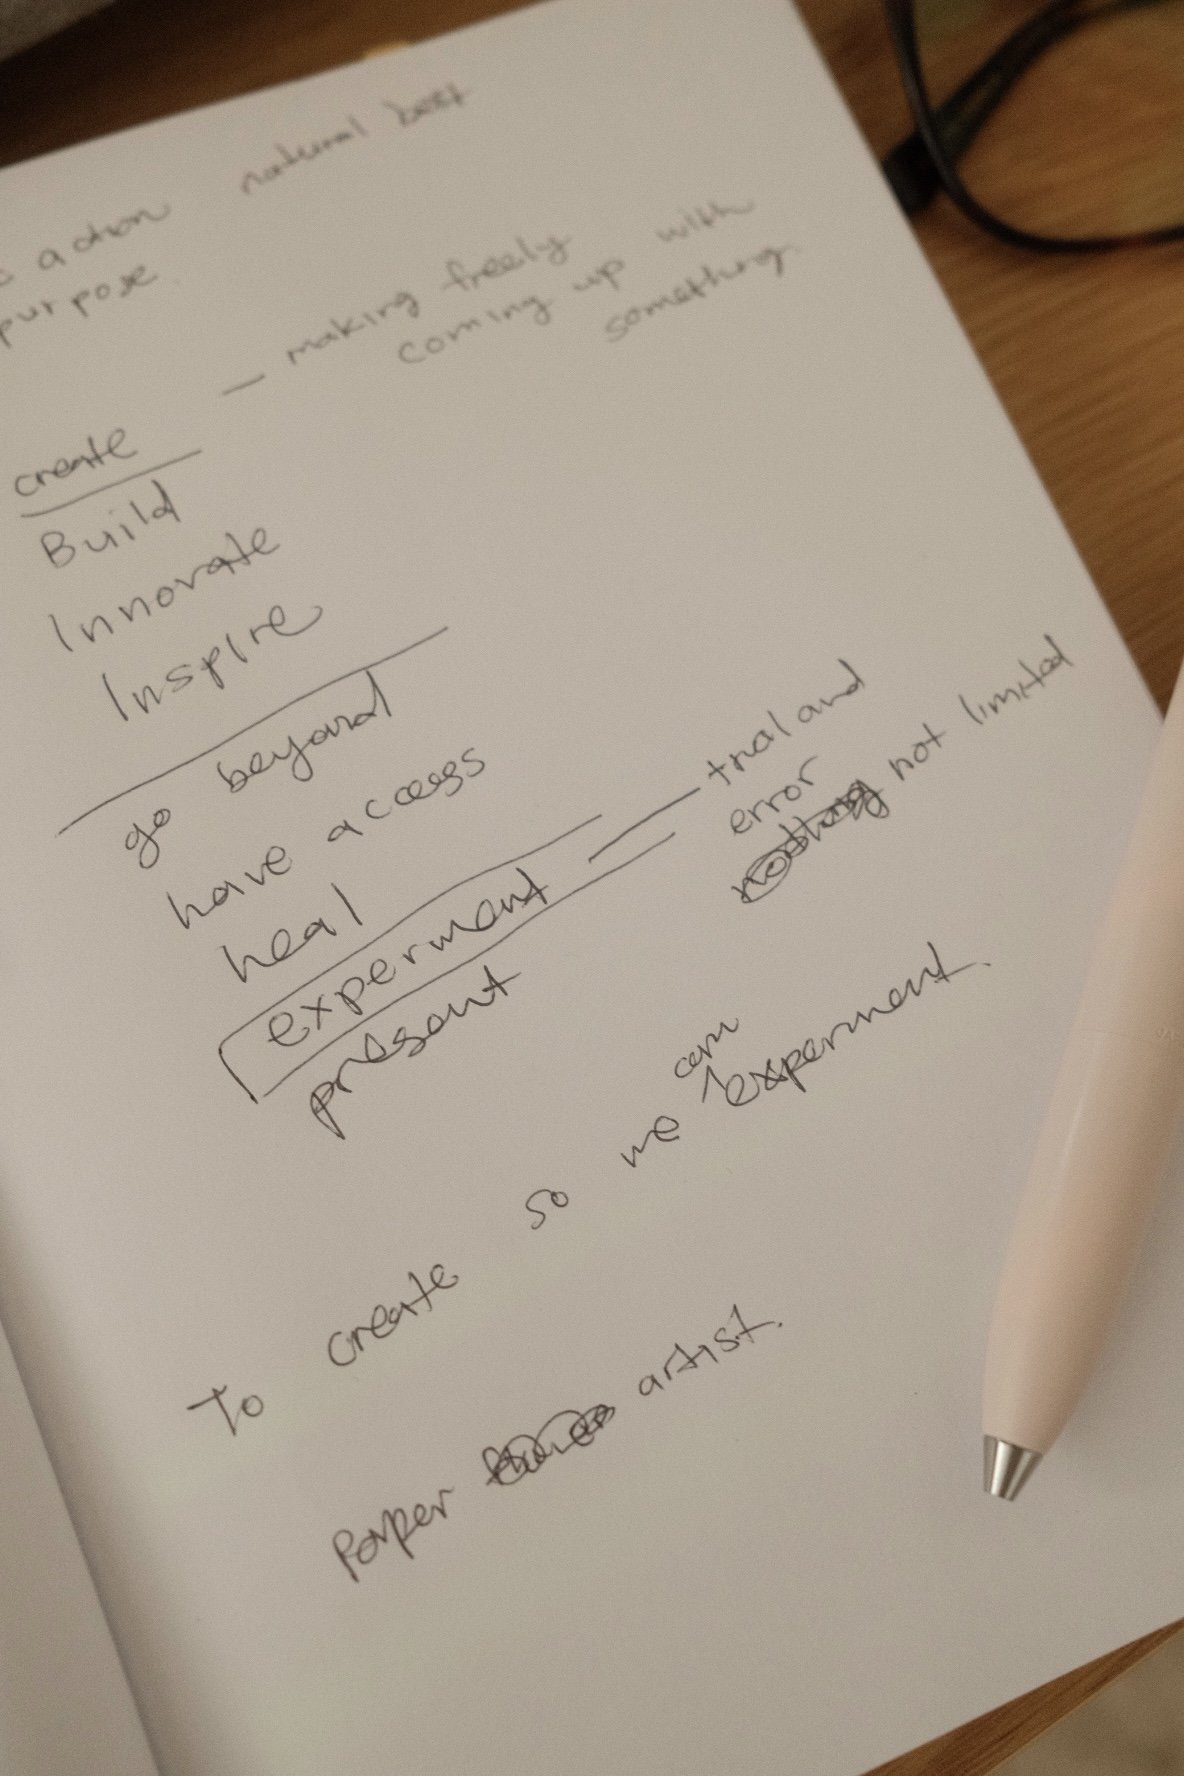 natural best
action
purpose.
— making freely
coming up with
something.
create
Build
Innovate
Inspire
go beyond
have access
heal
experment — trial and
error
nothing not limited
present
To create so we can experment.
Paper artist.